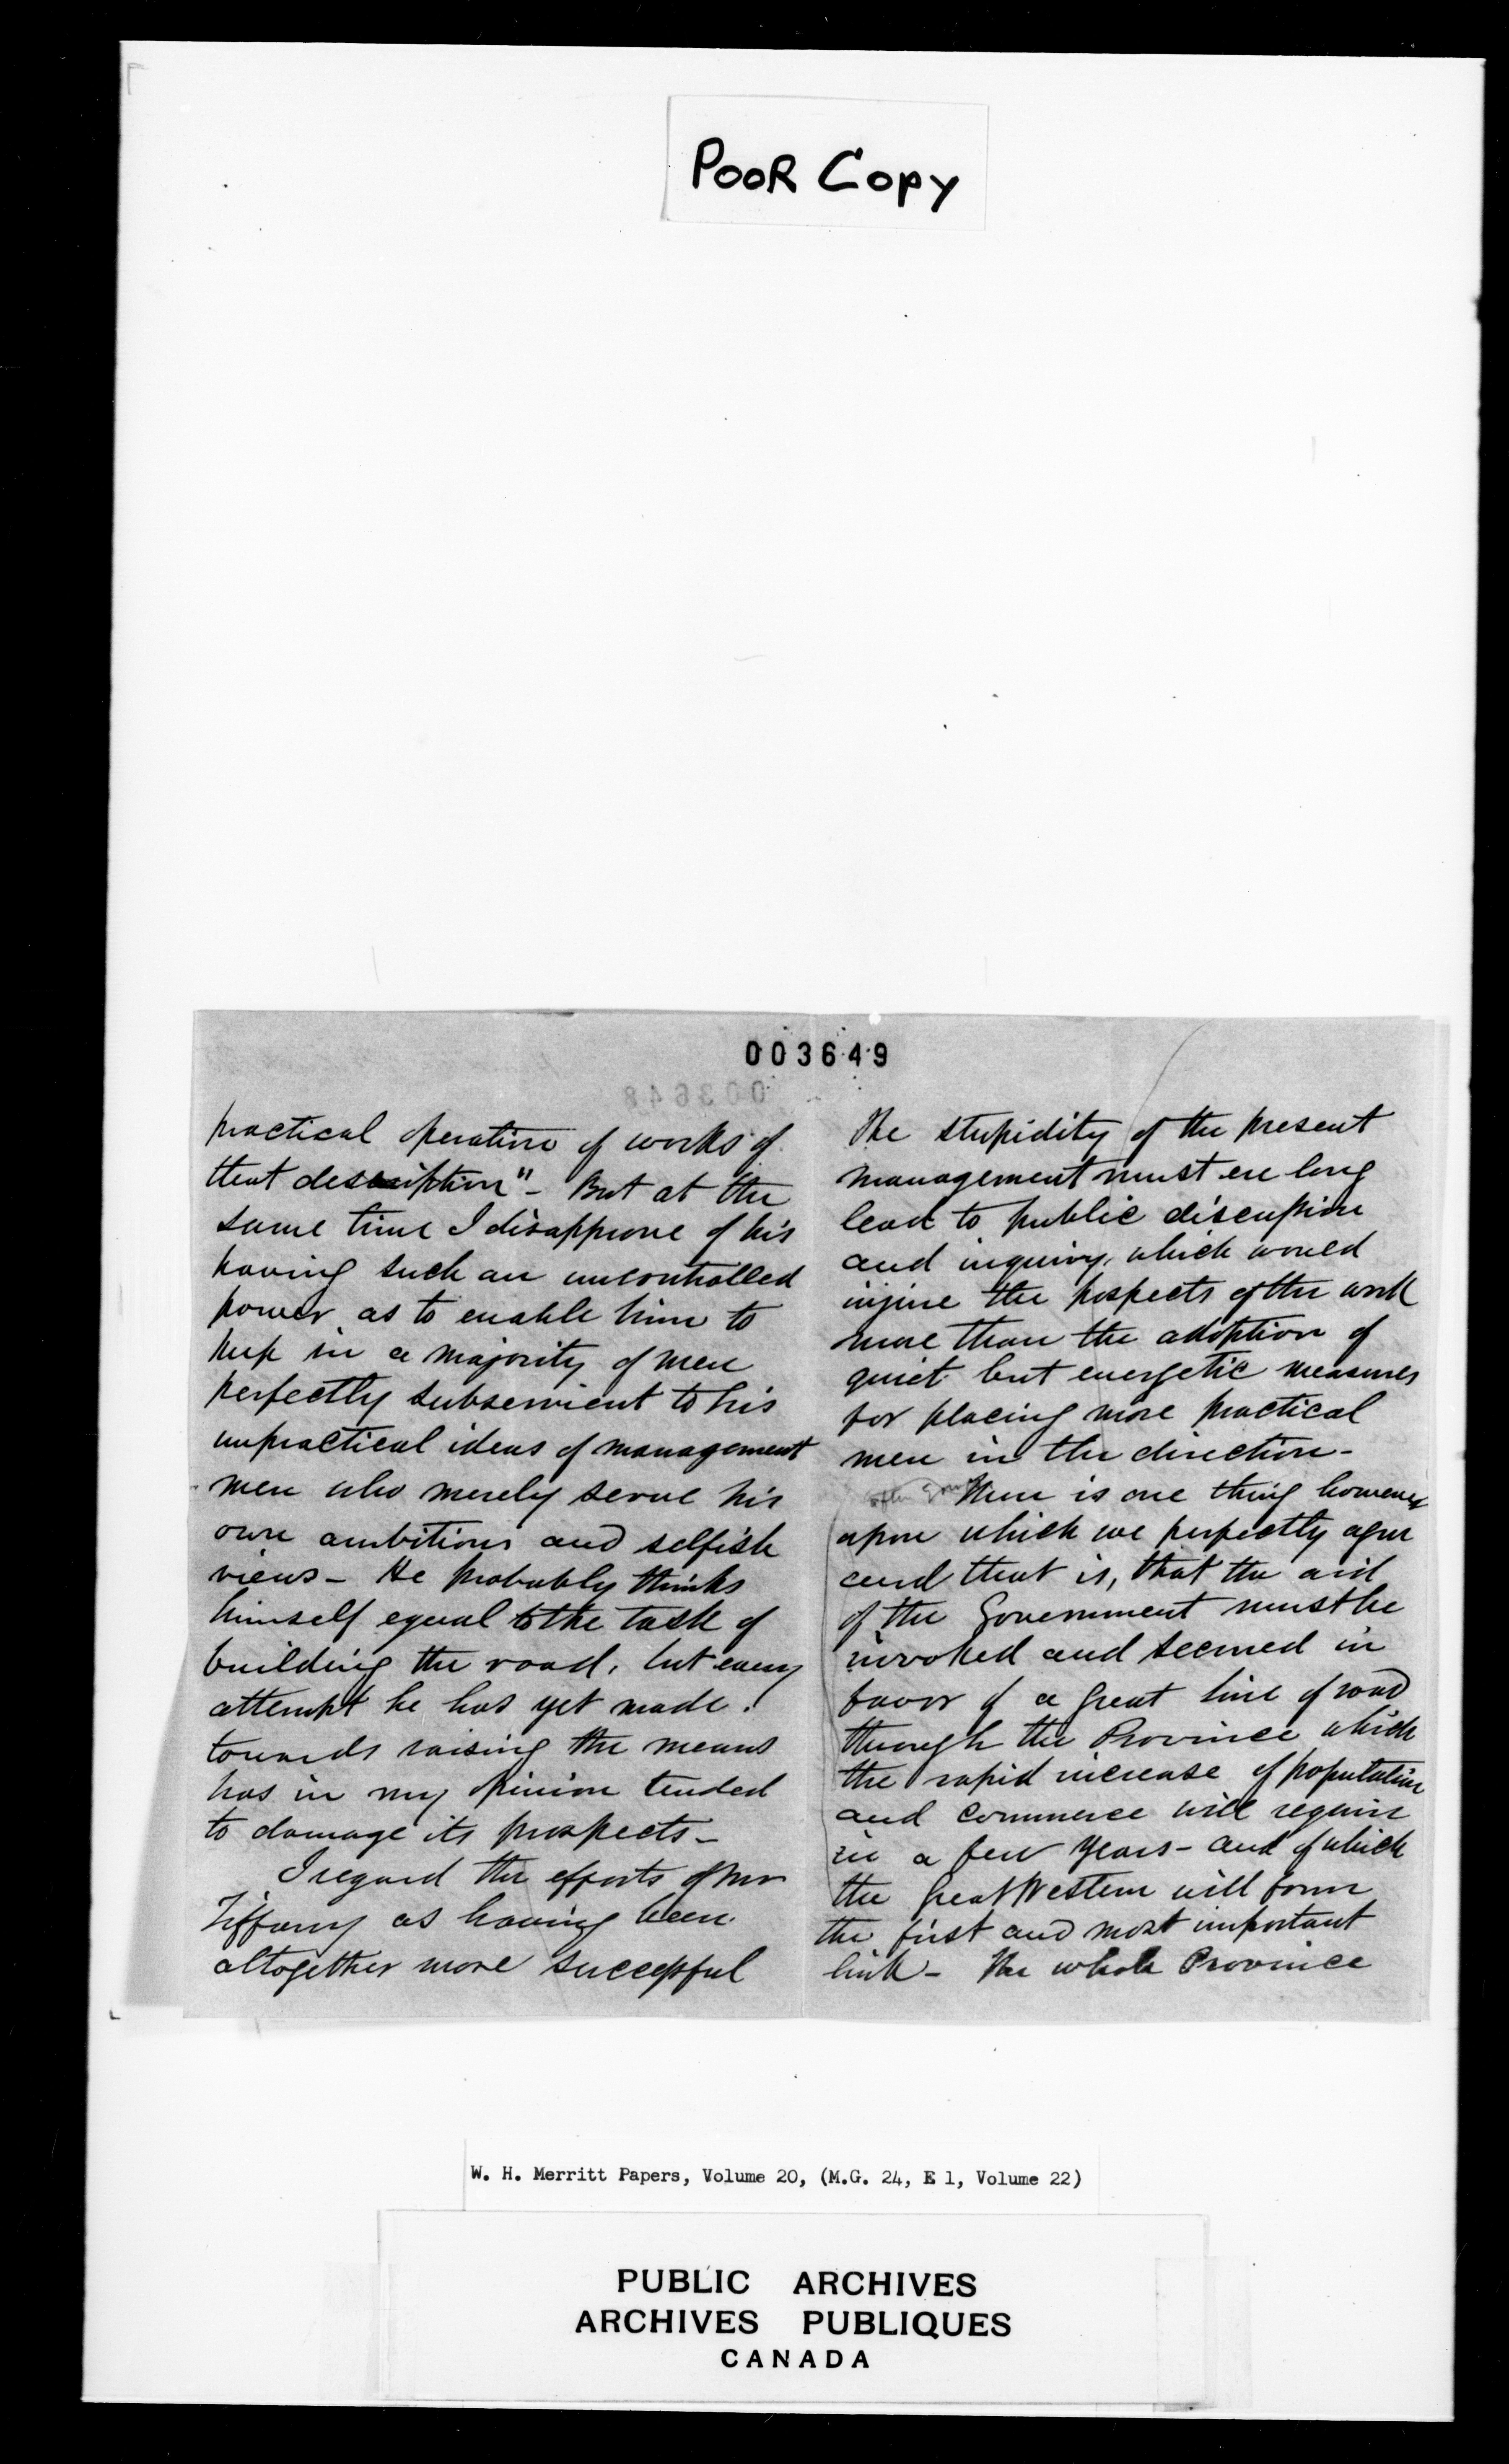 POOR COPY
003649
003648
practical operation of works of
that description" - But at the
same time I disapprove of his
having such an uncontrolled
power as to enable him to
keep in a majority of men
perfectly subservient to his
unpractical ideas of management
men who merely serve his
own ambitious and selfish
views - He probably thinks
himself equal to the task of
building the road, but every
attempt he has yet made
towards raising the means
has in my opinion tended
to damage its prospects -
I regard the efforts of Mr
Tiffany as having been
altogether more successful
The stupidity of the present
management must ere long
lead to public discussion
and inquiry, which would
injure the prospects of the work
more than the adoption of
quiet but energetic measures
for placing more practical
men in the direction -
There is one thing however
upon which we perfectly agree
and that is, that the aid
of the Government must be
invoked and secured in
favor of a great line of road
through the Province which
the rapid increase of population
and commerce will require
in a few years - and of which
the Great Western will form
the first and most important
link - The whole Province
W. H. Merritt Papers, Volume 20, (M.G. 24, E 1, Volume 22)
PUBLIC ARCHIVES
ARCHIVES PUBLIQUES
CANADA